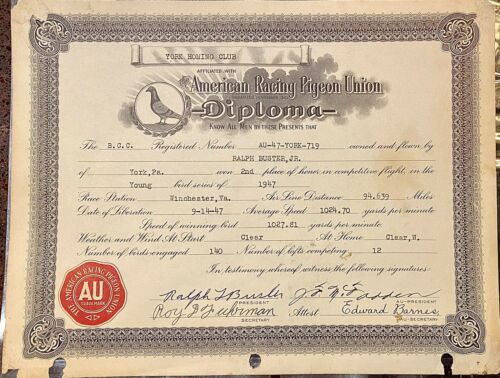 YORK HOMING CLUB
AFFILIATED WITH
American Racing Pigeon Union
Diploma
KNOW ALL MEN BY THESE PRESENTS THAT
The B.C.C. Registered Number AU-47-YORK-719 owned and flown by
RALPH BUSTER,JR.
of York,Pa. won 2nd place of honor in competitive flight, in the
Young bird series of 1947
Race Station Winchester,Va. Air Line Distance 94.639 Miles
Date of Liberation 9-14-47 Average Speed 1024.70 yards per minute
Speed of winning bird 1027.81 yards per minute
Weather and Wind At Start Clear At Home Clear,W.
Number of birds engaged 140 Number of lofts competing 12
In testimony whereof witness the following signatures:
Ralph L Buster
PRESIDENT
AU-PRESIDENT
Roy F Fuhrman
SECRETARY
Attest Edward Barnes
AU-SECRETARY
THE AMERICAN RACING PIGEON UNION
AU
TRADE MARK